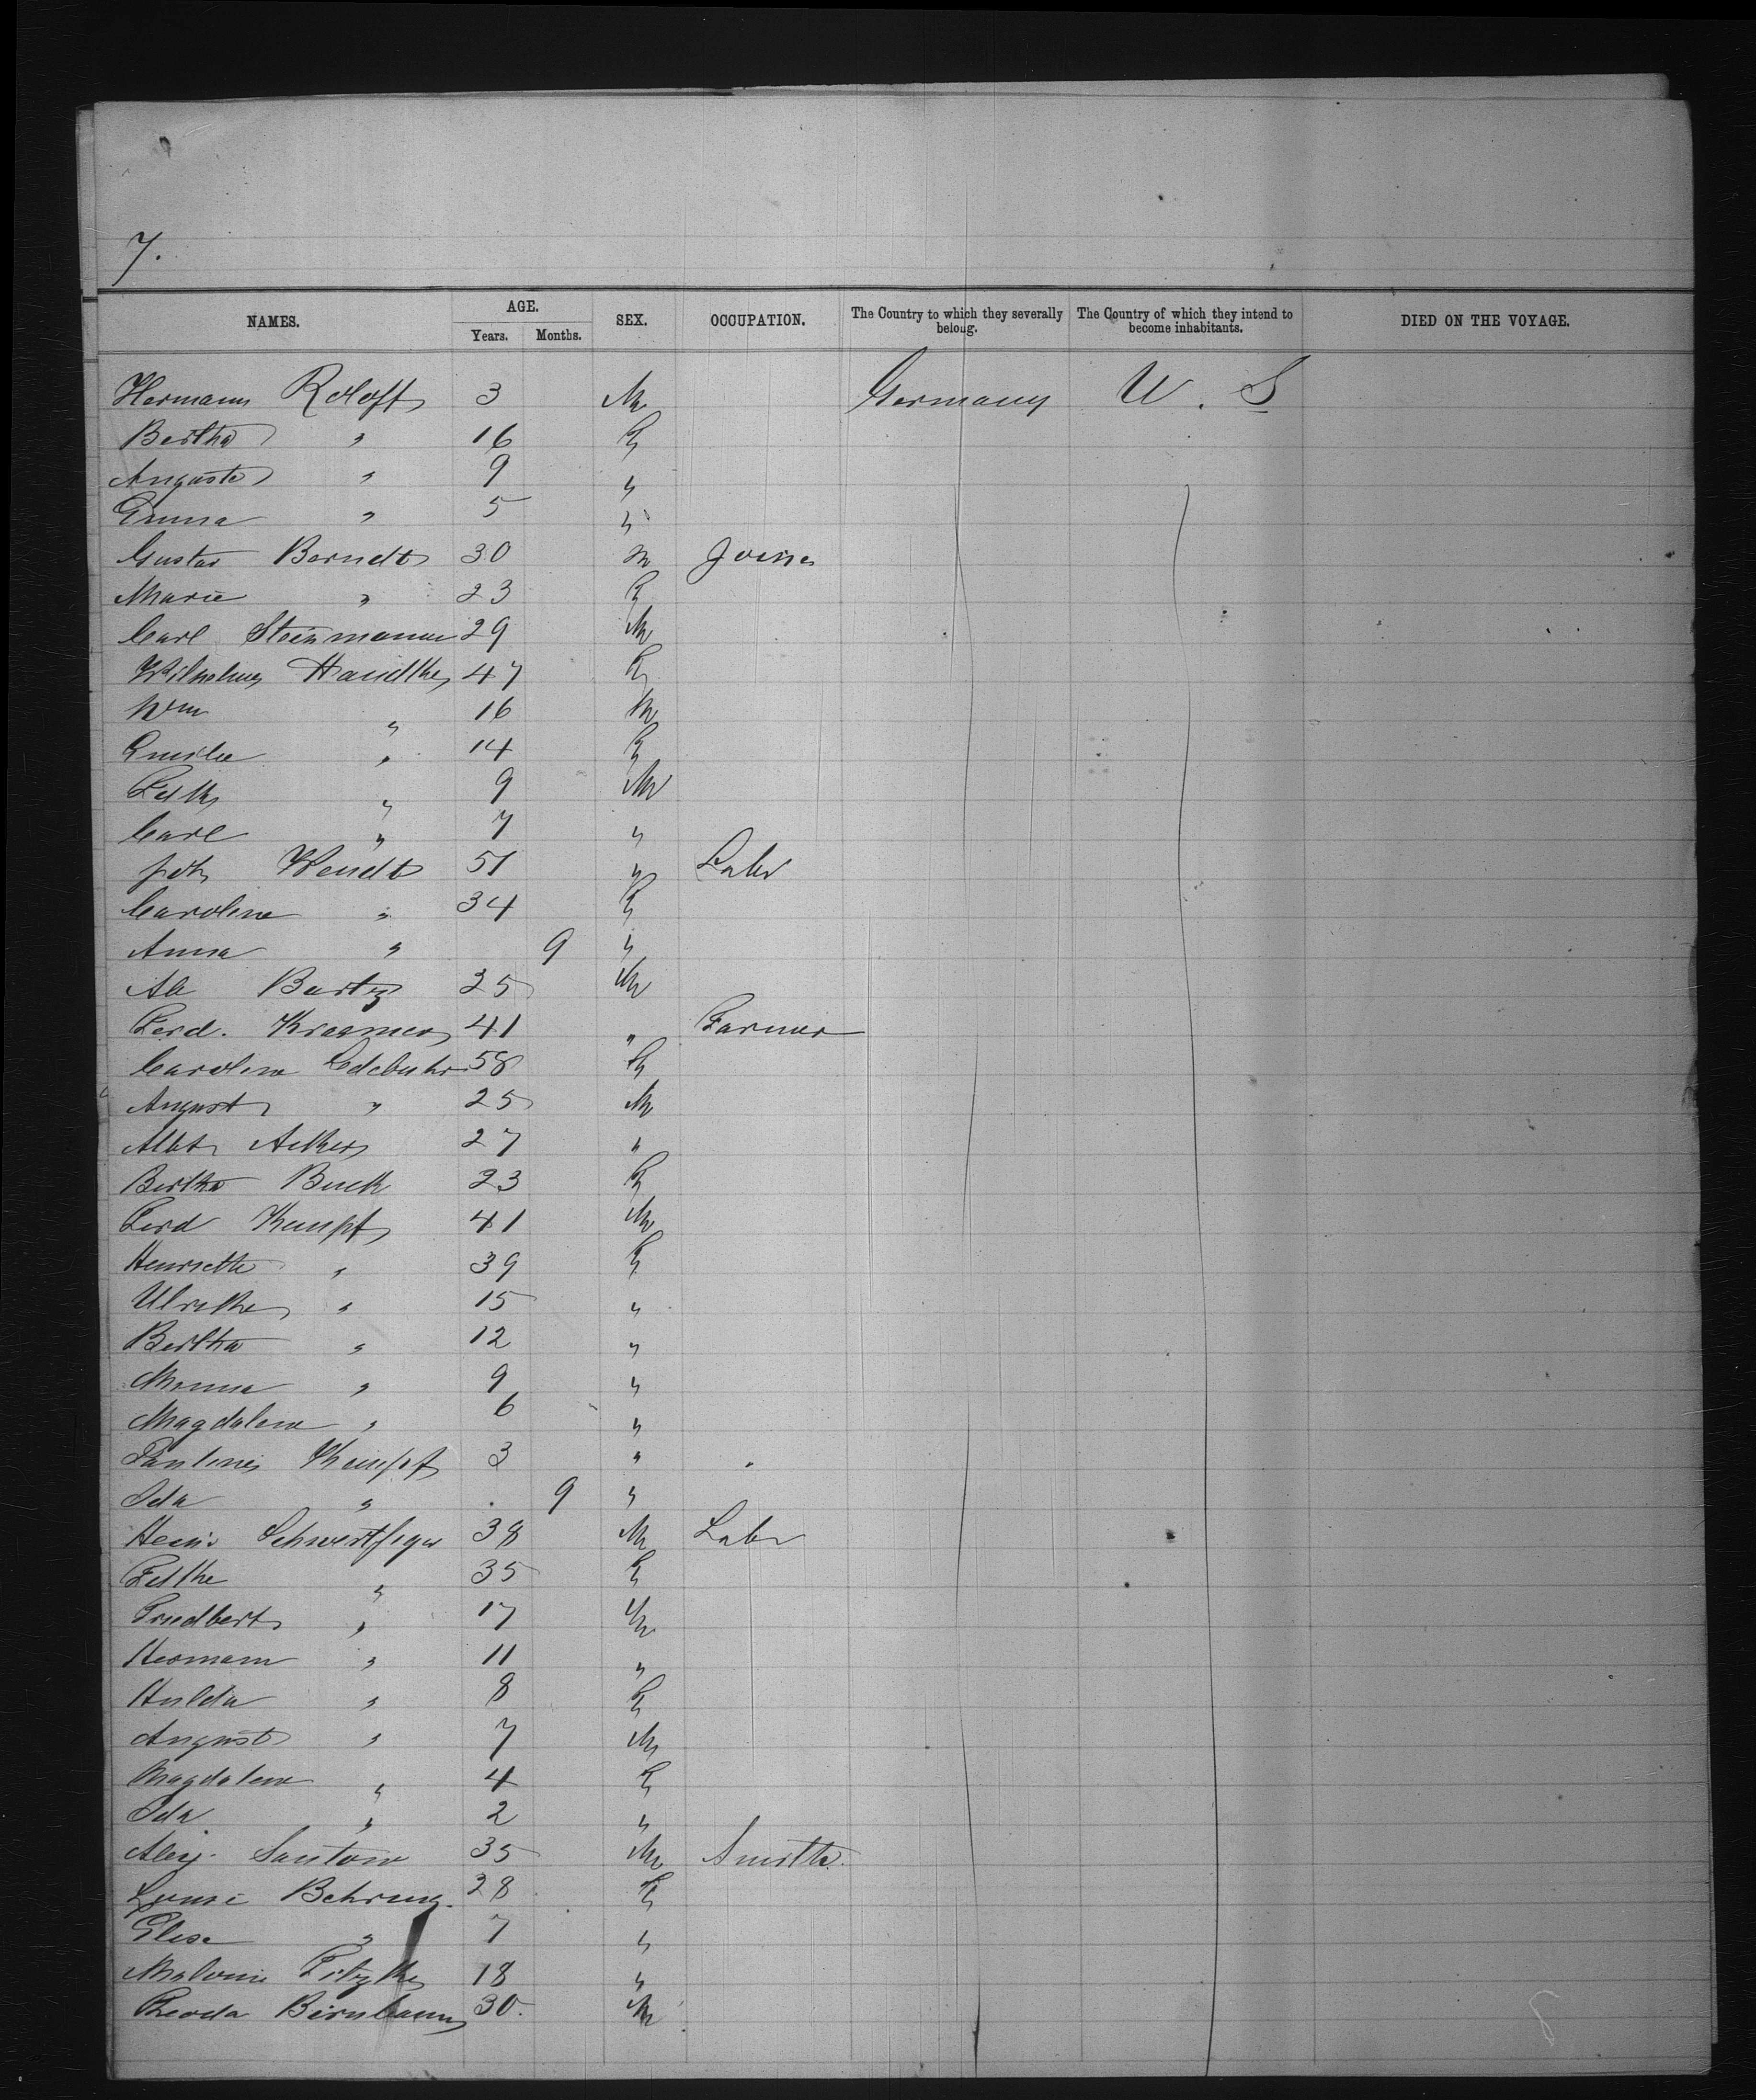 7.
NAMES. AGE. SEX. OCCUPATION. The Country to which they severally belong. The Country of which they intend to become inhabitants. DIED ON THE VOYAGE.
Years. Months.
Hermann Roloff 3 M Germany U. S
Bertha " 16 F
Auguste " 9 "
Emma " 5 "
Gustav Berndt 30 M Joiner
Marie " 23 F
Carl Steinmann 29 M
Wilhelm Handtke 47 F
Wm " 16 M
Emilie " 14 F
9 M
Carl " 7 "
Joh Wendt 51 " Labr
Caroline " 34 F
Anna " 9 "
Bartz 25 M
Ferd. Kraemer 41 " Farmer
Caroline Ledebuhr 58 F
August " 25 M
Albt 27 "
Bertha Buck 23 F
Ferd Kempf 41 M
Henriette " 39 F
Ulrike " 15 "
Bertha " 12 "
Minna " 9 "
Magdalena " 6 "
Pauline Kempf 3 "
Ida " 9 "
Heinr Schwertfeger 38 M Labr
" 35 F
Friedbert " 17 M
Hermann " 11 "
Hulda " 8 F
August " 7 M
Magdalena " 4 F
Ida " 2 "
Alex. Santow 35 M Smith
Louise Behring 28 F
Elise " 7 "
18 "
Birnbaum 30 M
8